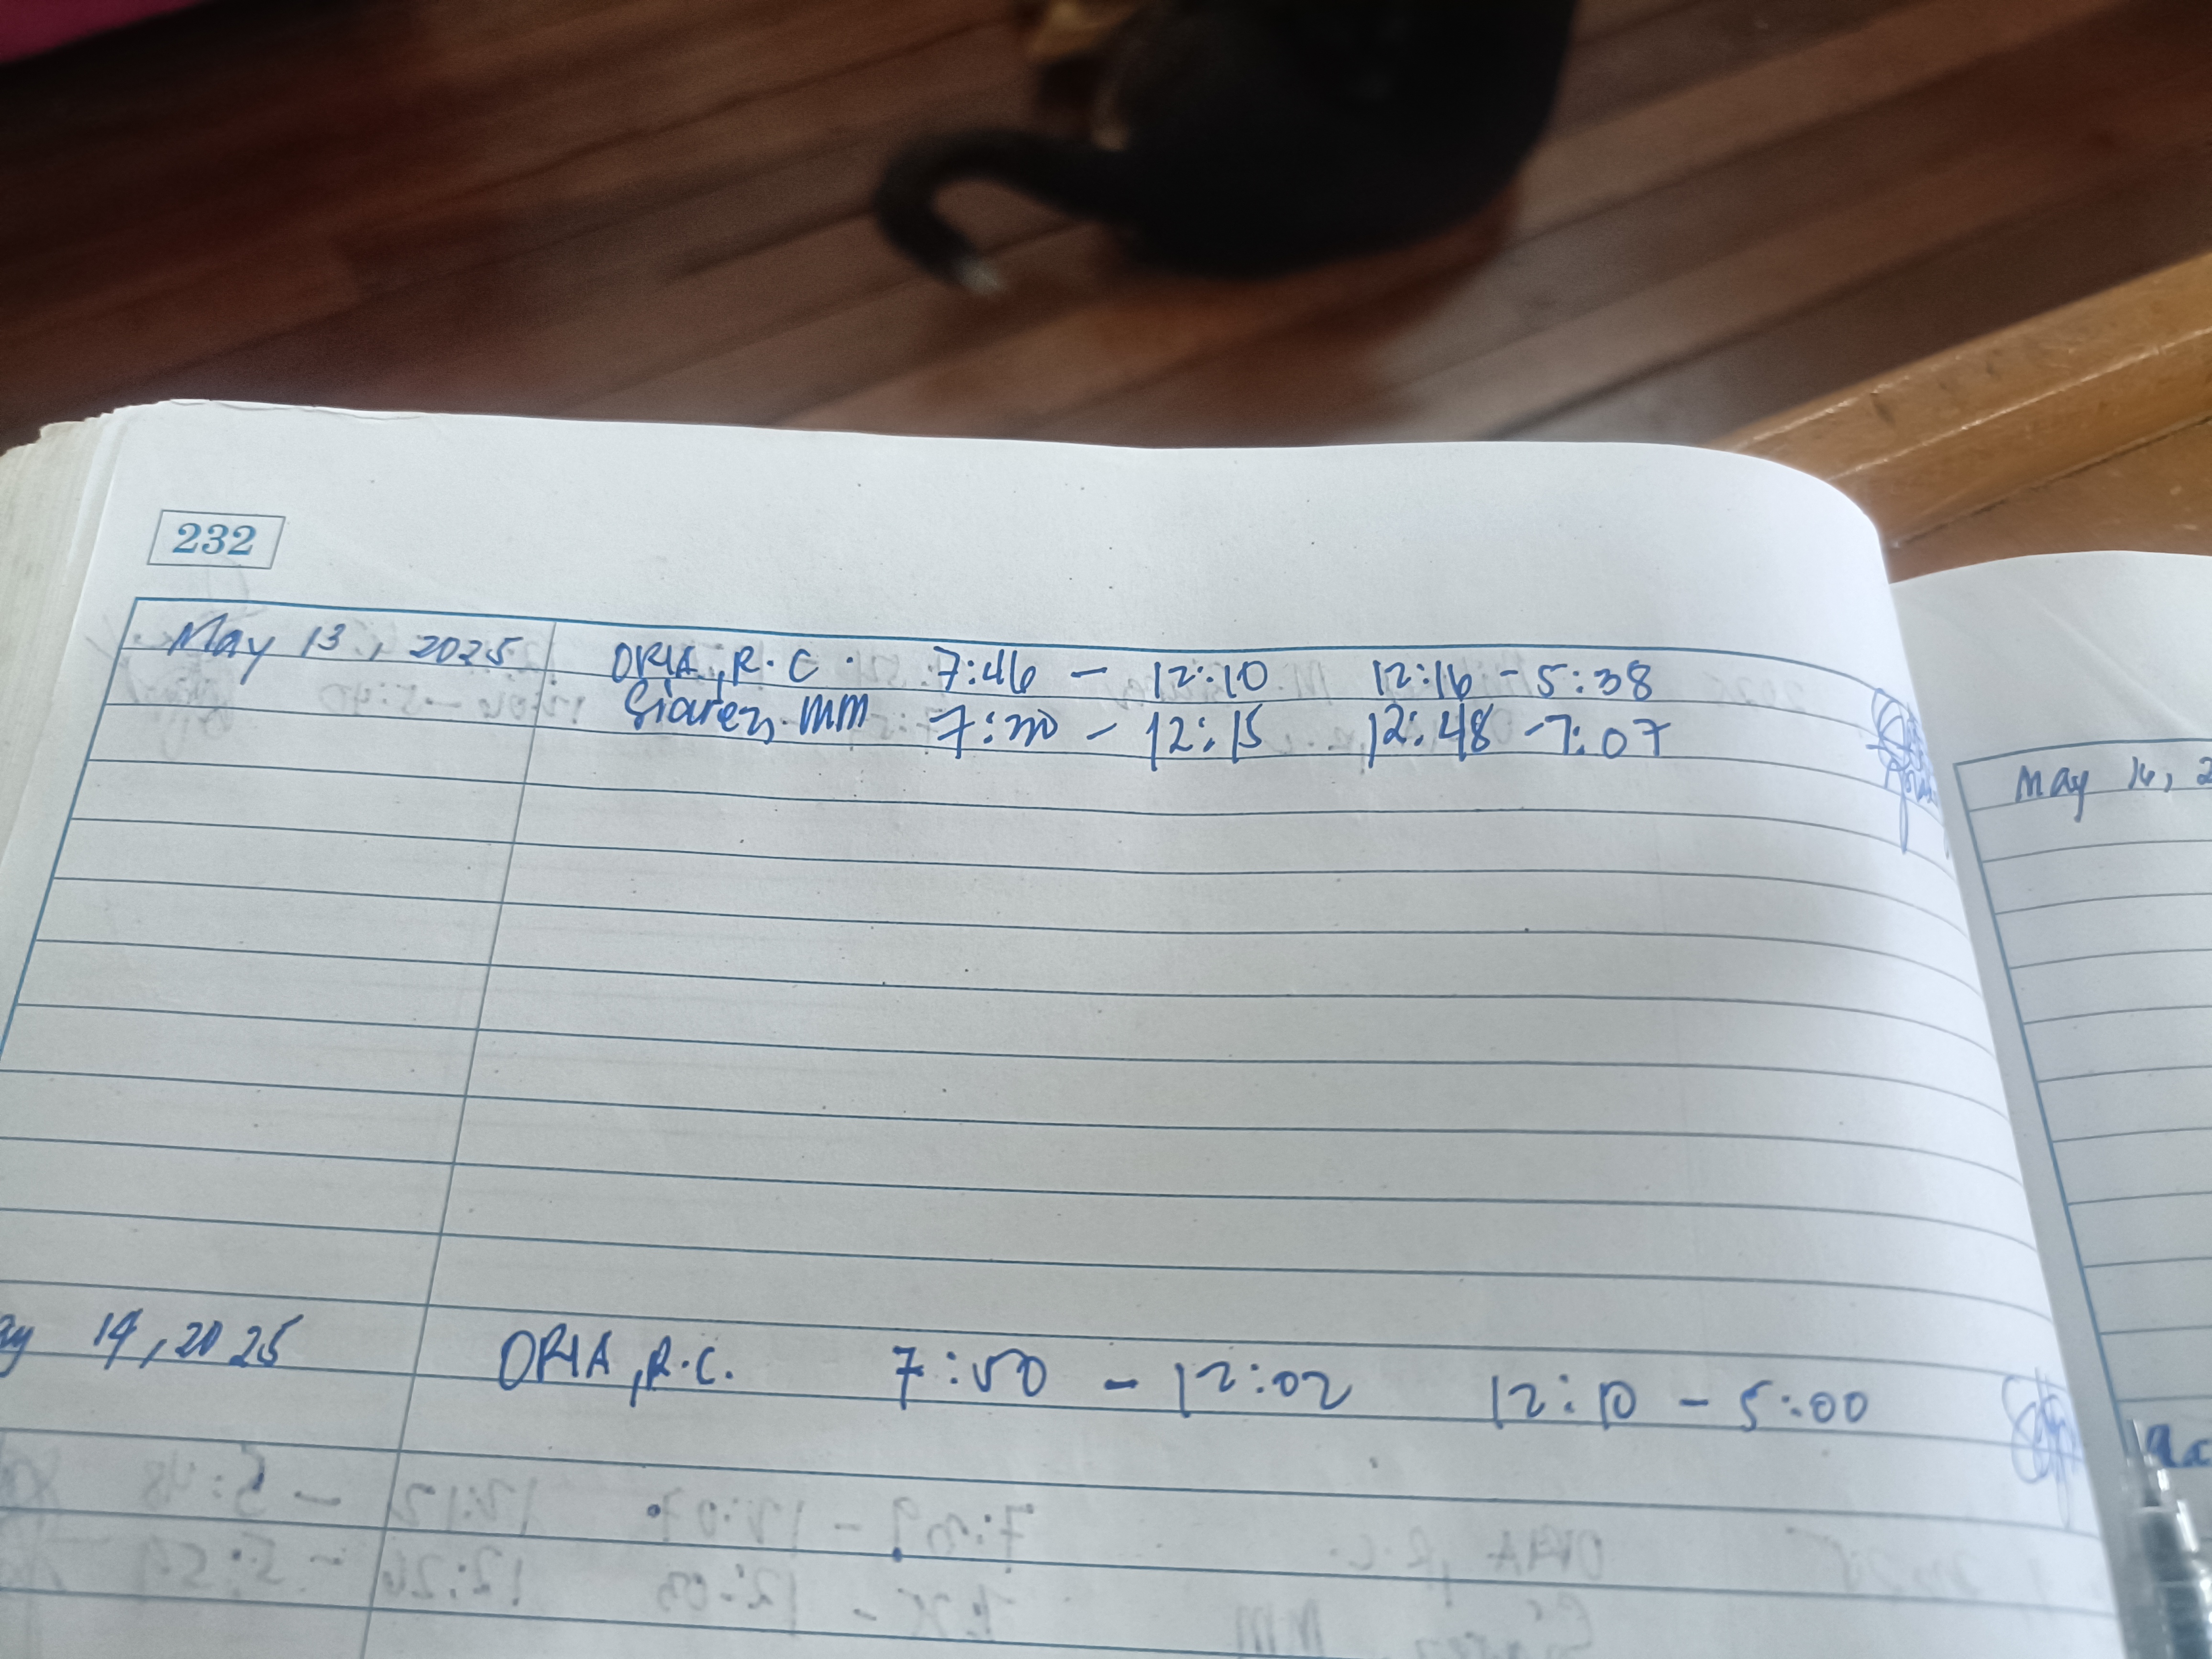 232
May 13, 2025 ORIA, R.C. 7:46 - 12:10 12:16 - 5:38
MM 7:20 - 12:15 12:48 - 7:07
May 16, 2
14, 2025 ORIA, R.C. 7:50 - 12:02 12:10 - 5:00